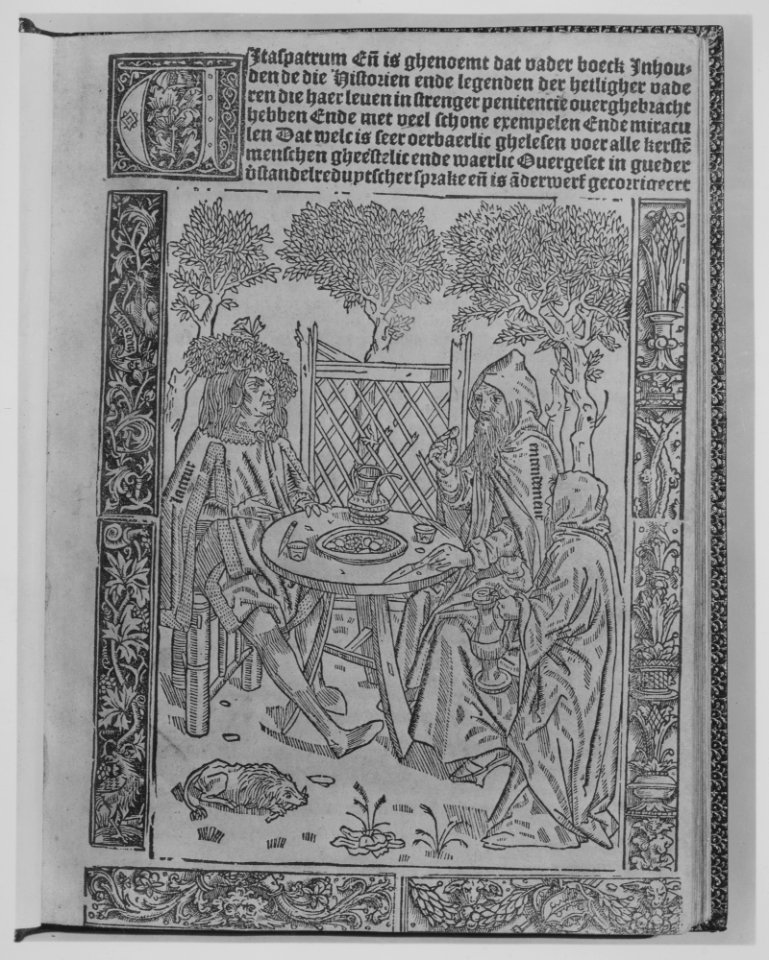 Vitaspatrum Eñ is ghenoemt dat vader boeck Inhou-
den de die Historien ende legenden der heiligher vade
ren die haer leuen in strenger penitencie ouerghebracht
hebben Ende met veel schone exempelen Ende miracu
len Dat welc is seer oerbaerlic ghelesen voer alle kerstē
menschen gheestelic ende waerlic Ouergeset in gueder
vstandelre duytscher sprake eñ is āderwerf gecorrigeert